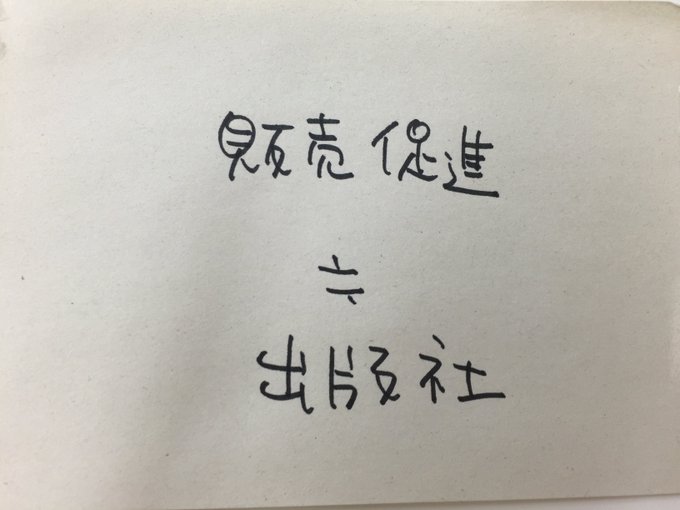 販売促進
≒
出版社